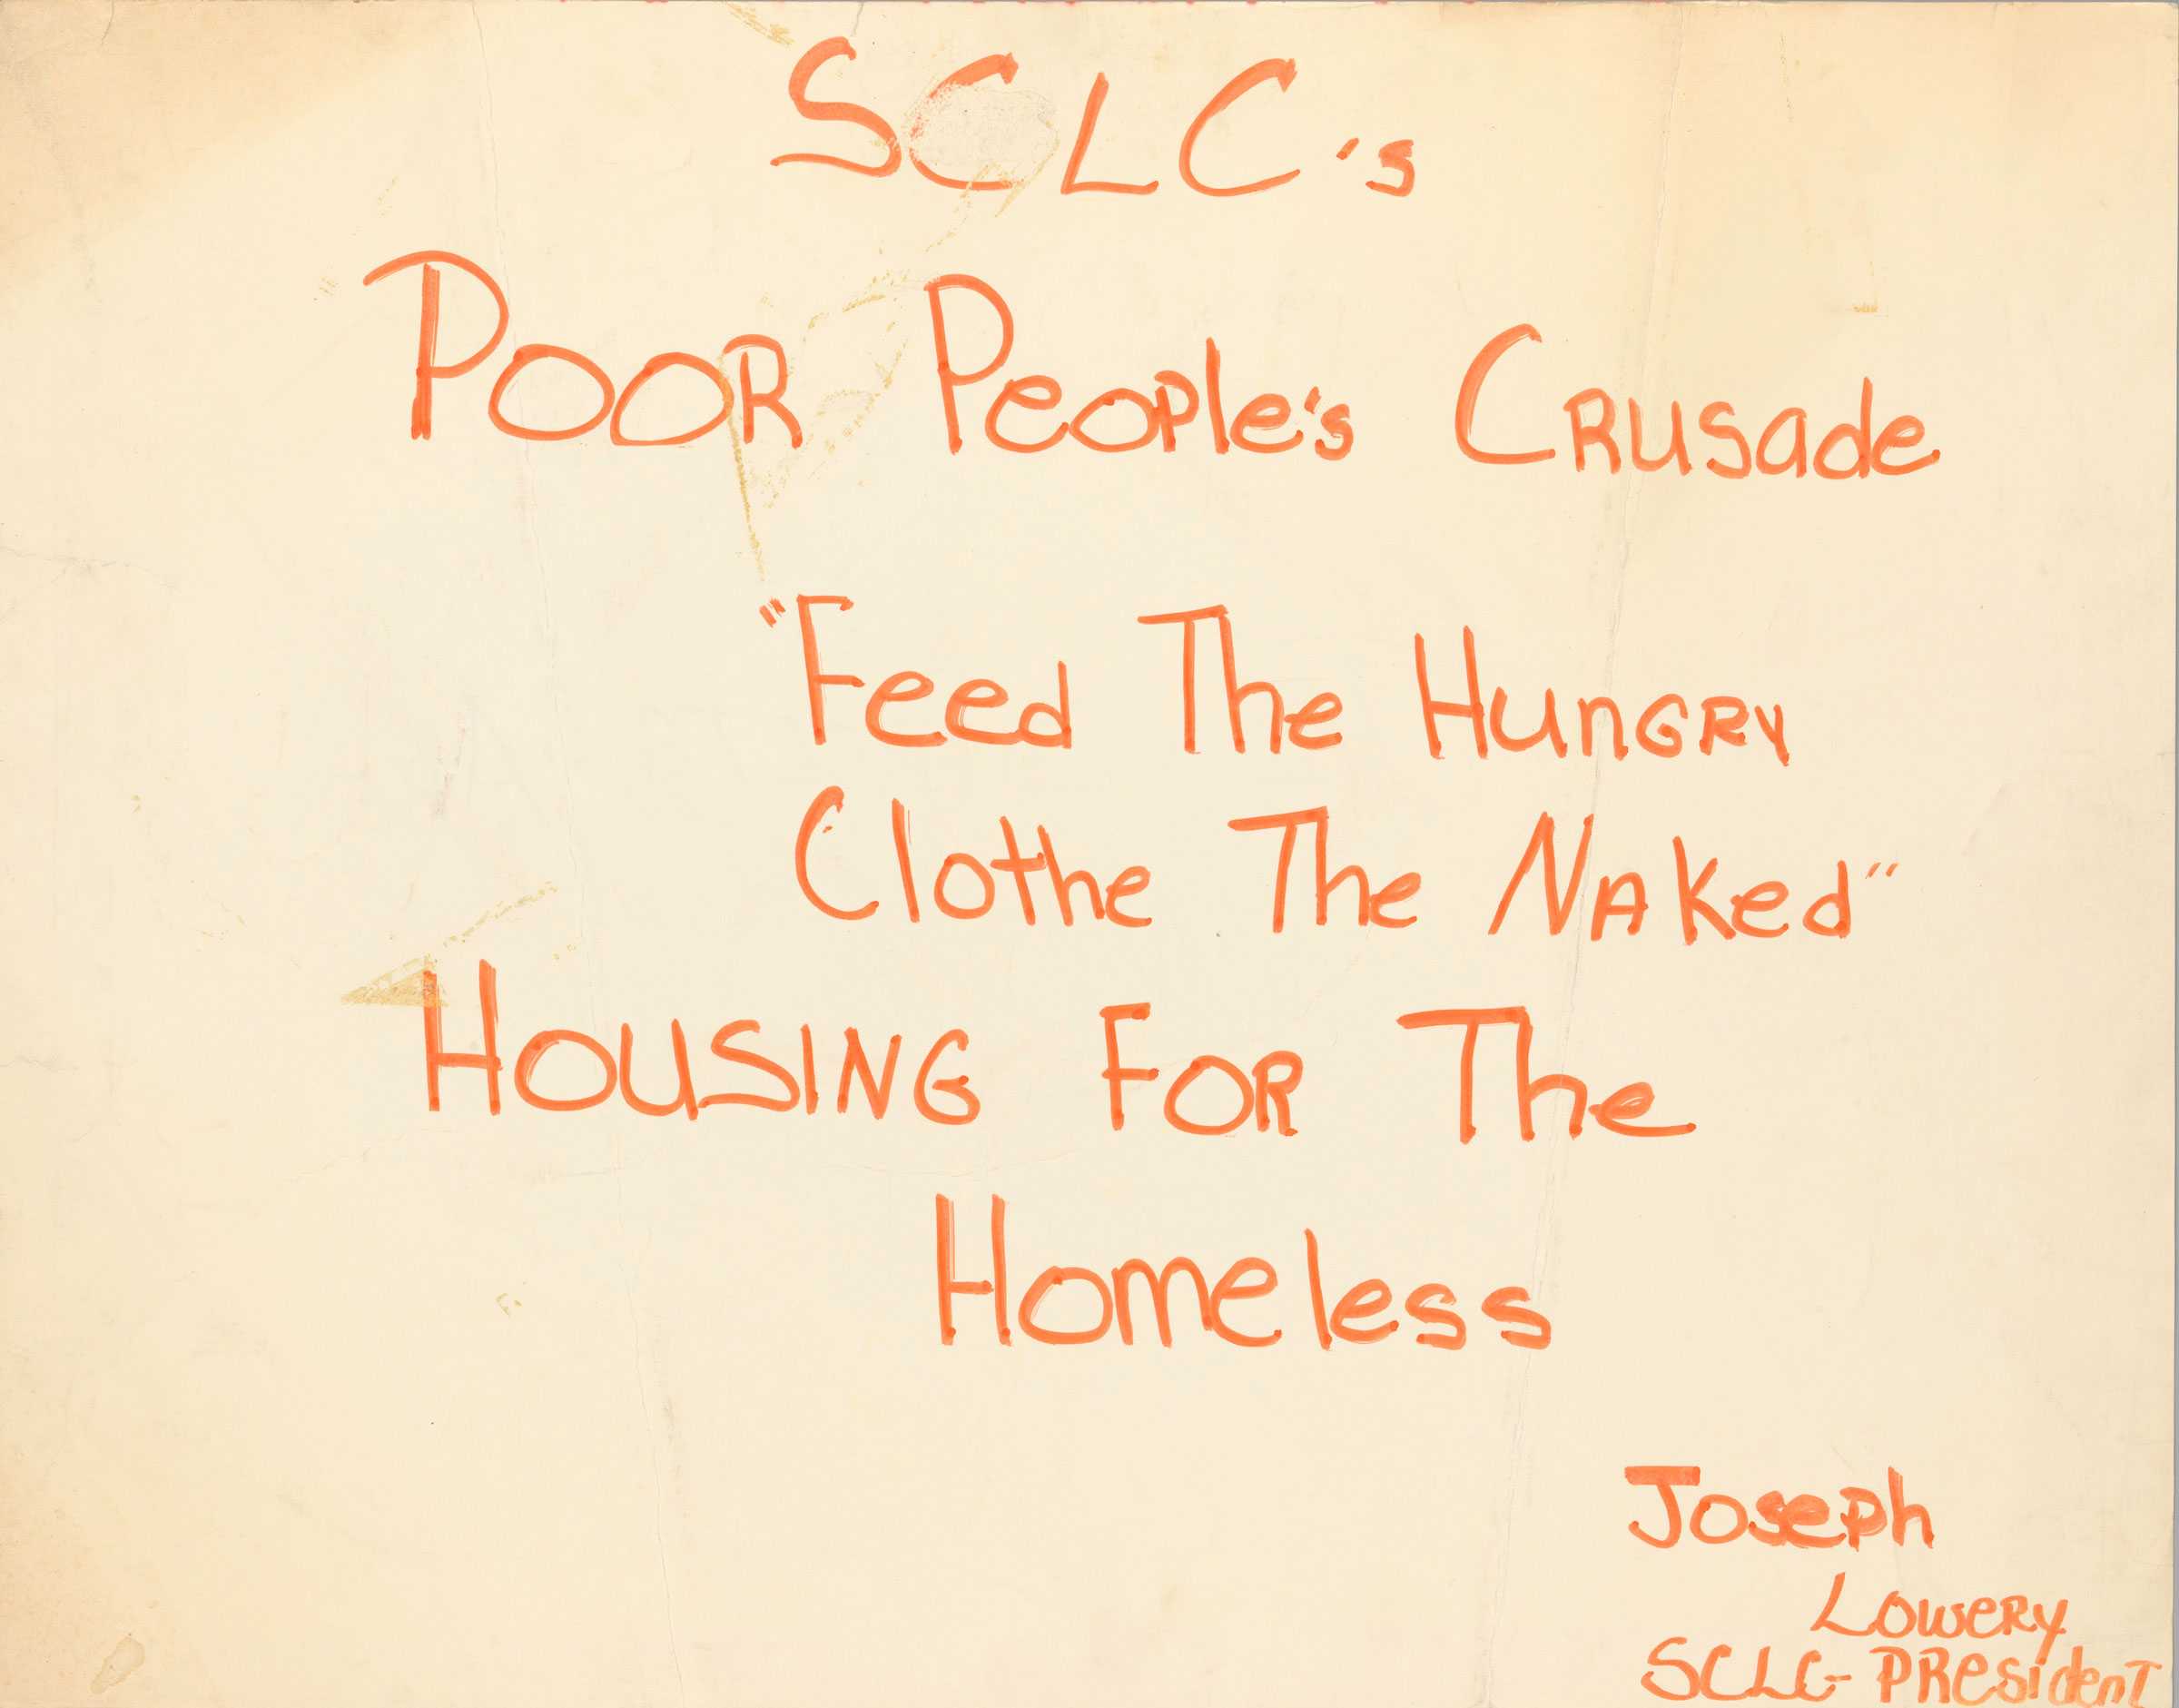 SCLC's
POOR PeOPle's CRUsade
"Feed The HUnGRY
Clothe The NAKed"
HOUSING FOR The
Homeless
Joseph
LoweRy
SCLC- PResidenT